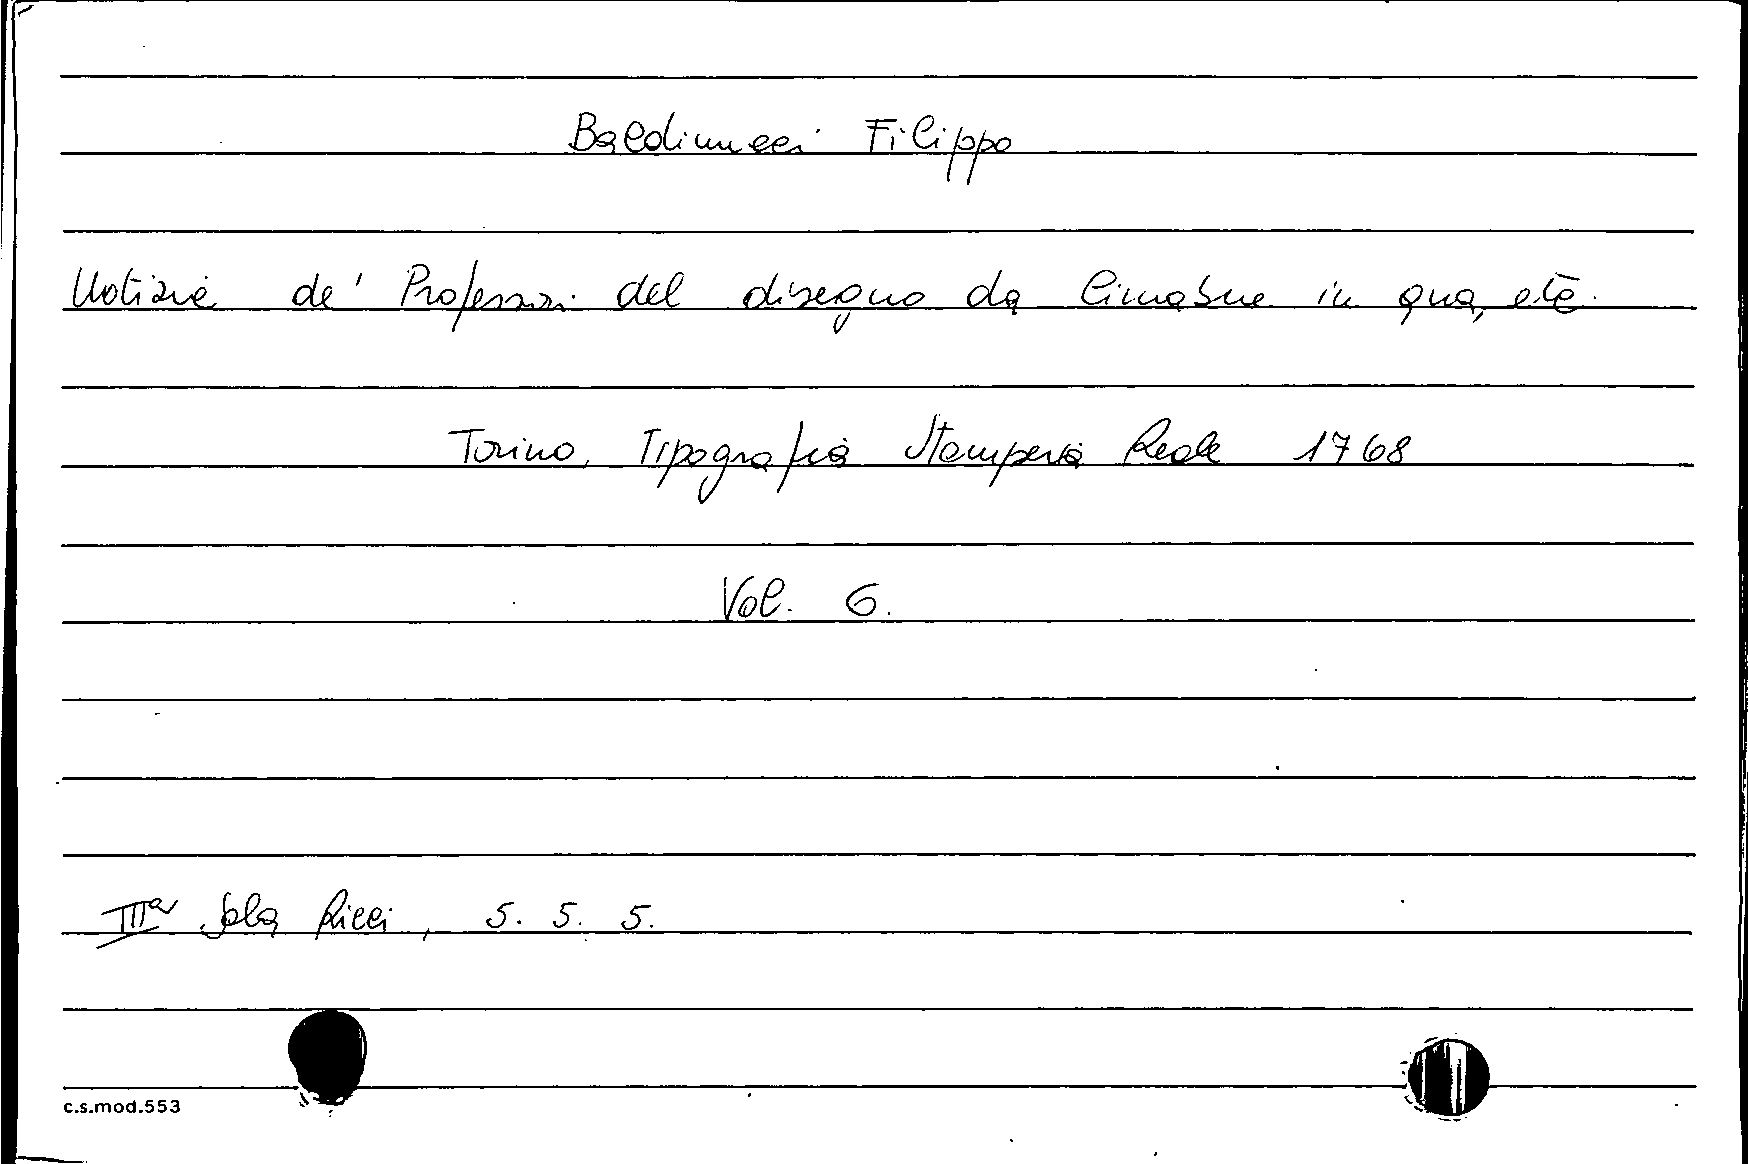 Baldinucci Filippo
Notizie de' Professori del disegno da Cimabue in qua, etc.
Torino, Tipografia Stamperia Reale 1768
Vol. 6.
IIIa Sala Ricci, 5. 5. 5.
c.s.mod.553